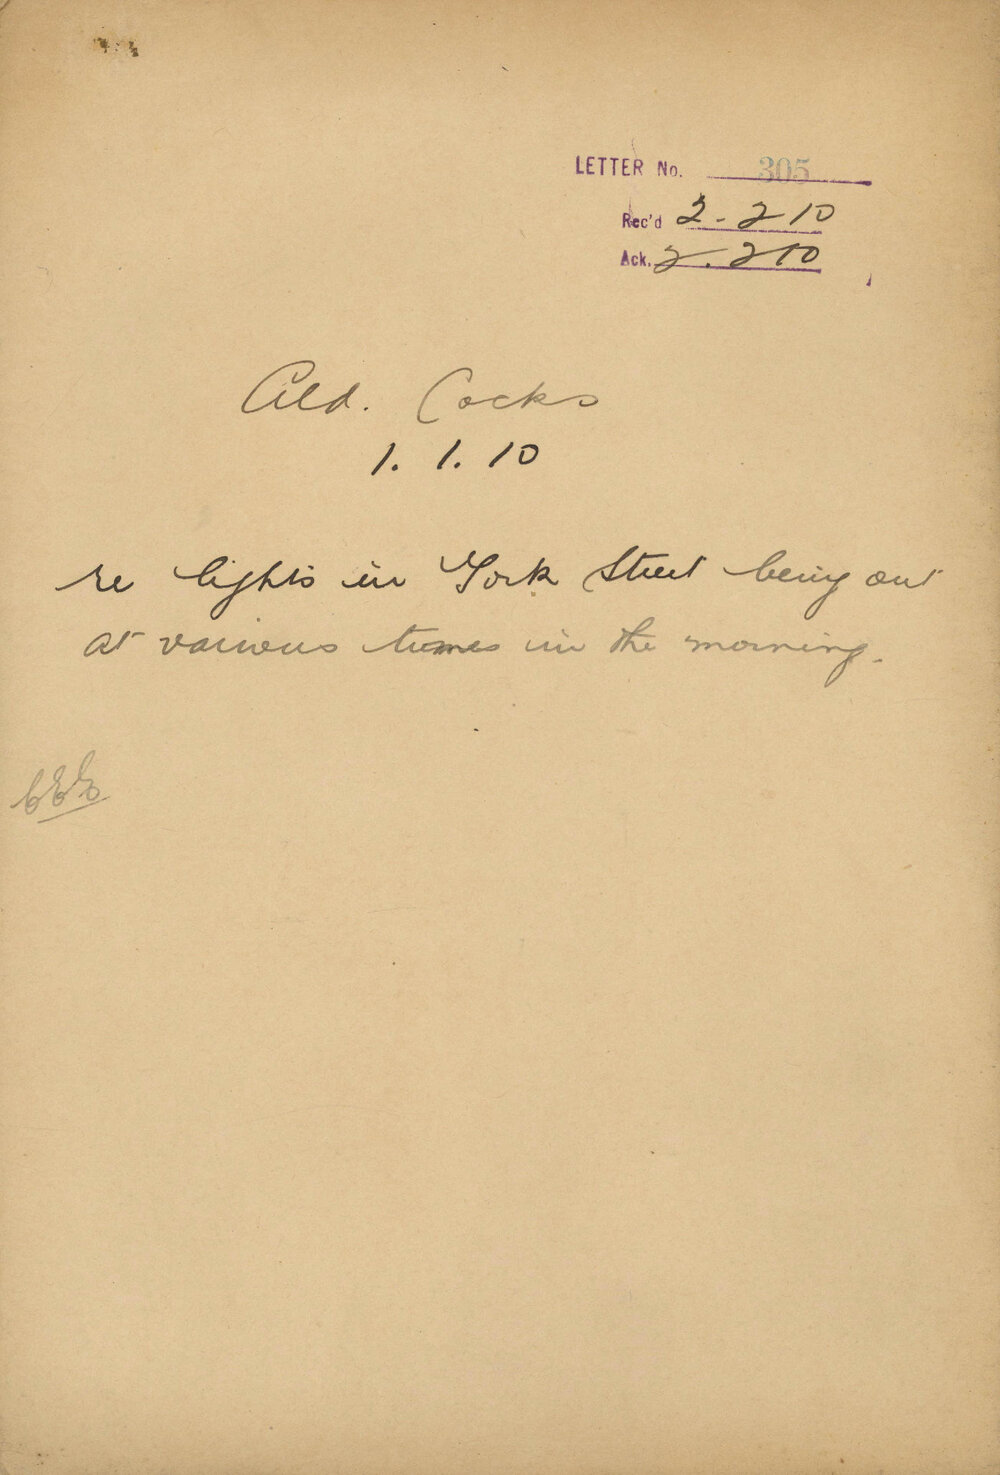 LETTER No. 305
Rec'd 2-2 10
Ack. 2.2 10
Ald. Cocks
1.1.10
re lights in York Street being out
at various times in the morning.